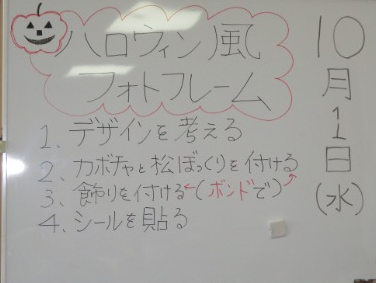 ハロウィン風
フォトフレーム
10月1日(水)
1、デザインを考える
2、カボチャと松ぼっくりを付ける
3、飾りを付ける←(ボンドで)
4、シールを貼る